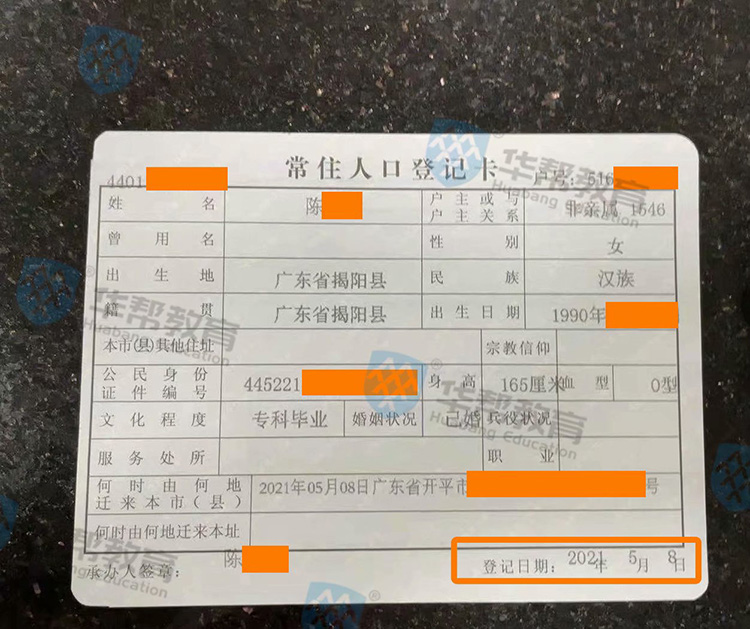 华帮教育
Huabang Education
常住人口登记卡
4401
户号：516
姓名 陈 户主或与户主关系 非亲属 1546
曾用名 性别 女
出生地 广东省揭阳县 民族 汉族
籍贯 广东省揭阳县 出生日期 1990年
本市(县)其他住址 宗教信仰
公民身份证件编号 445221 身高 165厘米 血型 O型
文化程度 专科毕业 婚姻状况 已婚 兵役状况
服务处所 职业
何时由何地迁来本市(县) 2021年05月08日广东省开平市 号
何时由何地迁来本址
承办人签章： 陈 登记日期：2021年 5月 8日